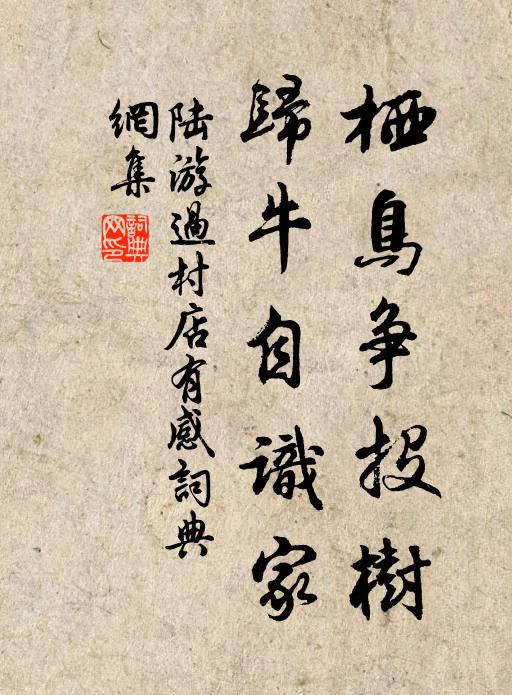 栖鳥争投樹
歸牛自識家
陸游過村店有感詞典
網集
詞典网印